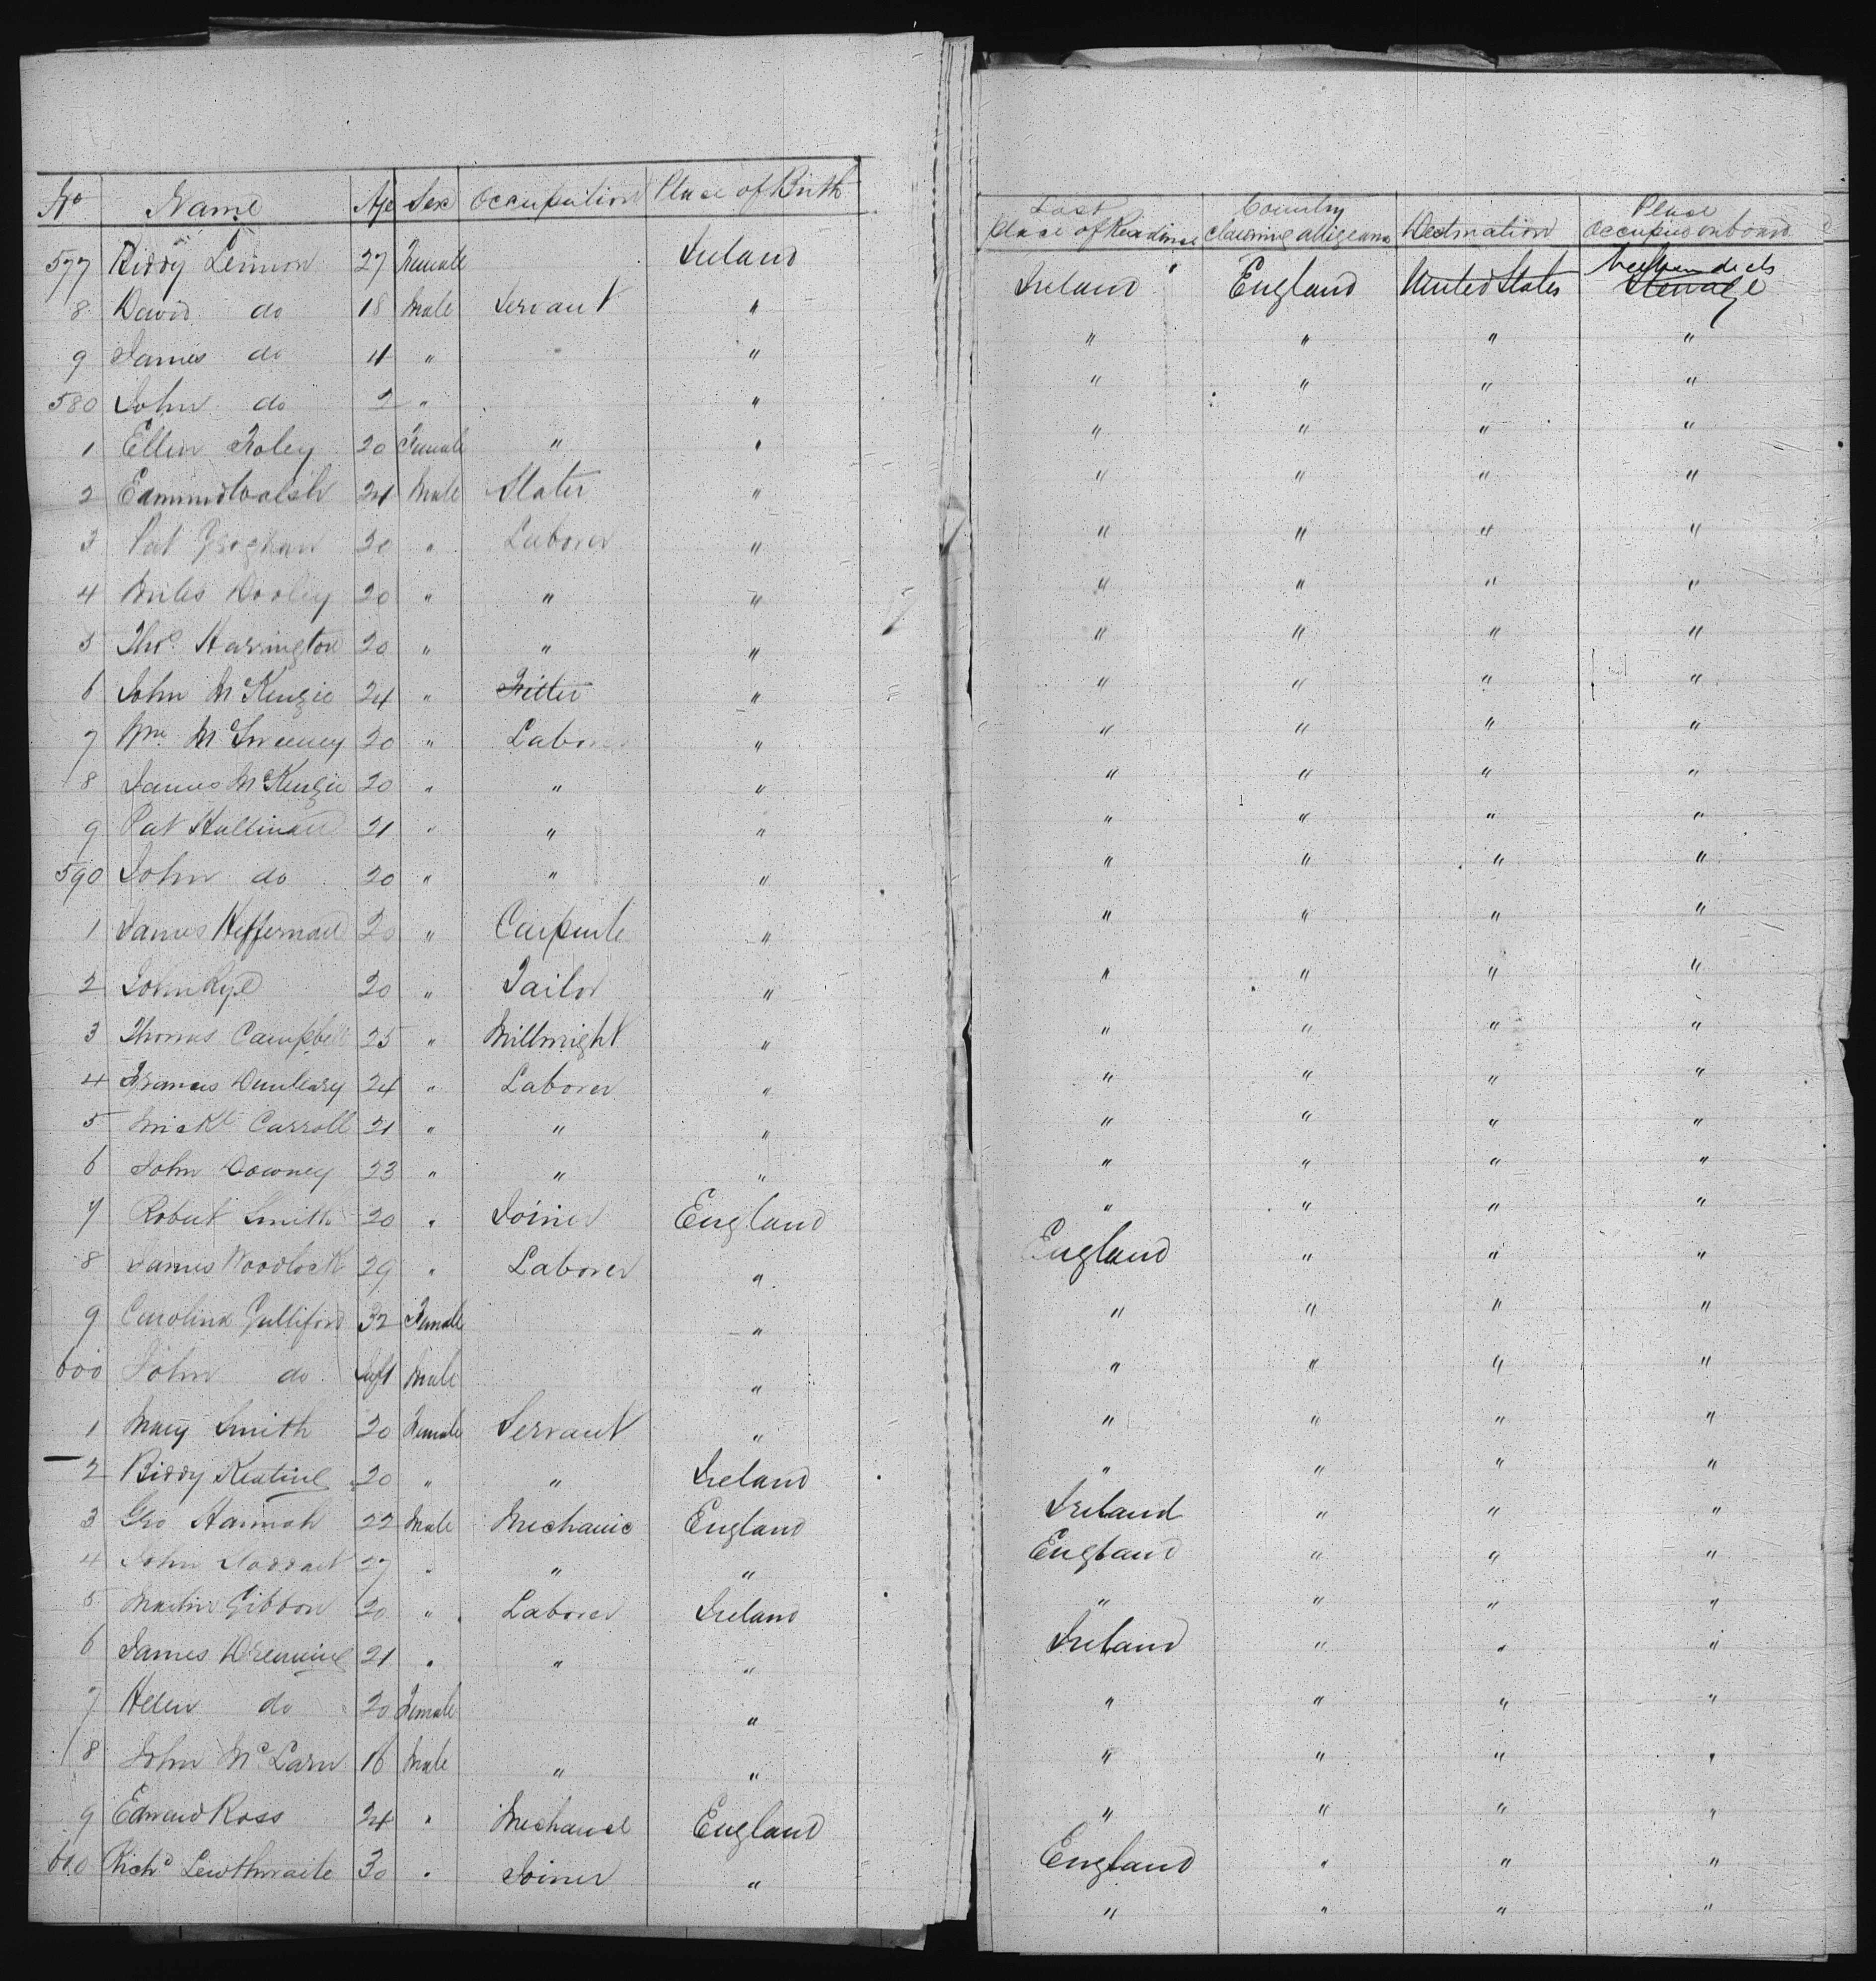 No Name Age Sex Occupation Place of Birth
577 Biddy Lennon 27 Female Ireland
8 David do 18 Male Servant "
9 James do 4 " "
580 John do 2 " "
1 Ellen Foley 20 Female " "
2 Edmund Walsh 24 Male Slater "
3 Pat Groghan 20 " Laborer "
4 Miles Dooley 20 " " "
5 Thos Harrington 20 " " "
6 John McKenzie 24 " Fitter "
7 Wm McSweeney 20 " Laborer "
8 James McKenzie 20 " " "
9 Pat Hallinan 21 " " "
590 John do 20 " " "
1 James Heffernan 20 " Carpente "
2 John Rye 20 " Tailor "
3 Thomas Campbell 25 " Millwright "
4 Francis Dunleary 24 " Laborer "
5 Mickl Carroll 21 " " "
6 John Downey 23 " " "
7 Robert Smith 20 " Joiner England
8 James Woodlock 29 " Laborer "
9 Carolina Gulliford 32 Female "
600 John do Inft Male "
1 Mary Smith 20 Female Servant "
2 Biddy Keating 20 " " Ireland
3 Geo Hannah 22 Male Mechanic England
4 John Stoddart 27 " " "
5 Martin Gibbon 20 " Laborer Ireland
6 James 21 " " "
7 Helen do 20 Female "
8 John McLarn 16 Male " "
9 Edward Ross 24 " Mechanic England
610 Richd Lewthwaite 30 " Joiner "
Last Place of Residince Country claiming allegeana Destination Place Occupied on board
Ireland England United States between decks Steerage
" " " "
" " " "
" " " "
" " " "
" " " "
" " " "
" " " "
" " " "
" " " "
" " " "
" " " "
" " " "
" " " "
" " " "
" " " "
" " " "
" " " "
" " " "
" " " "
England " " "
" " " "
" " " "
" " " "
" " " "
Ireland " " "
England " " "
" " " "
Ireland " " "
" " " "
" " " "
" " " "
England " " "
" " " "